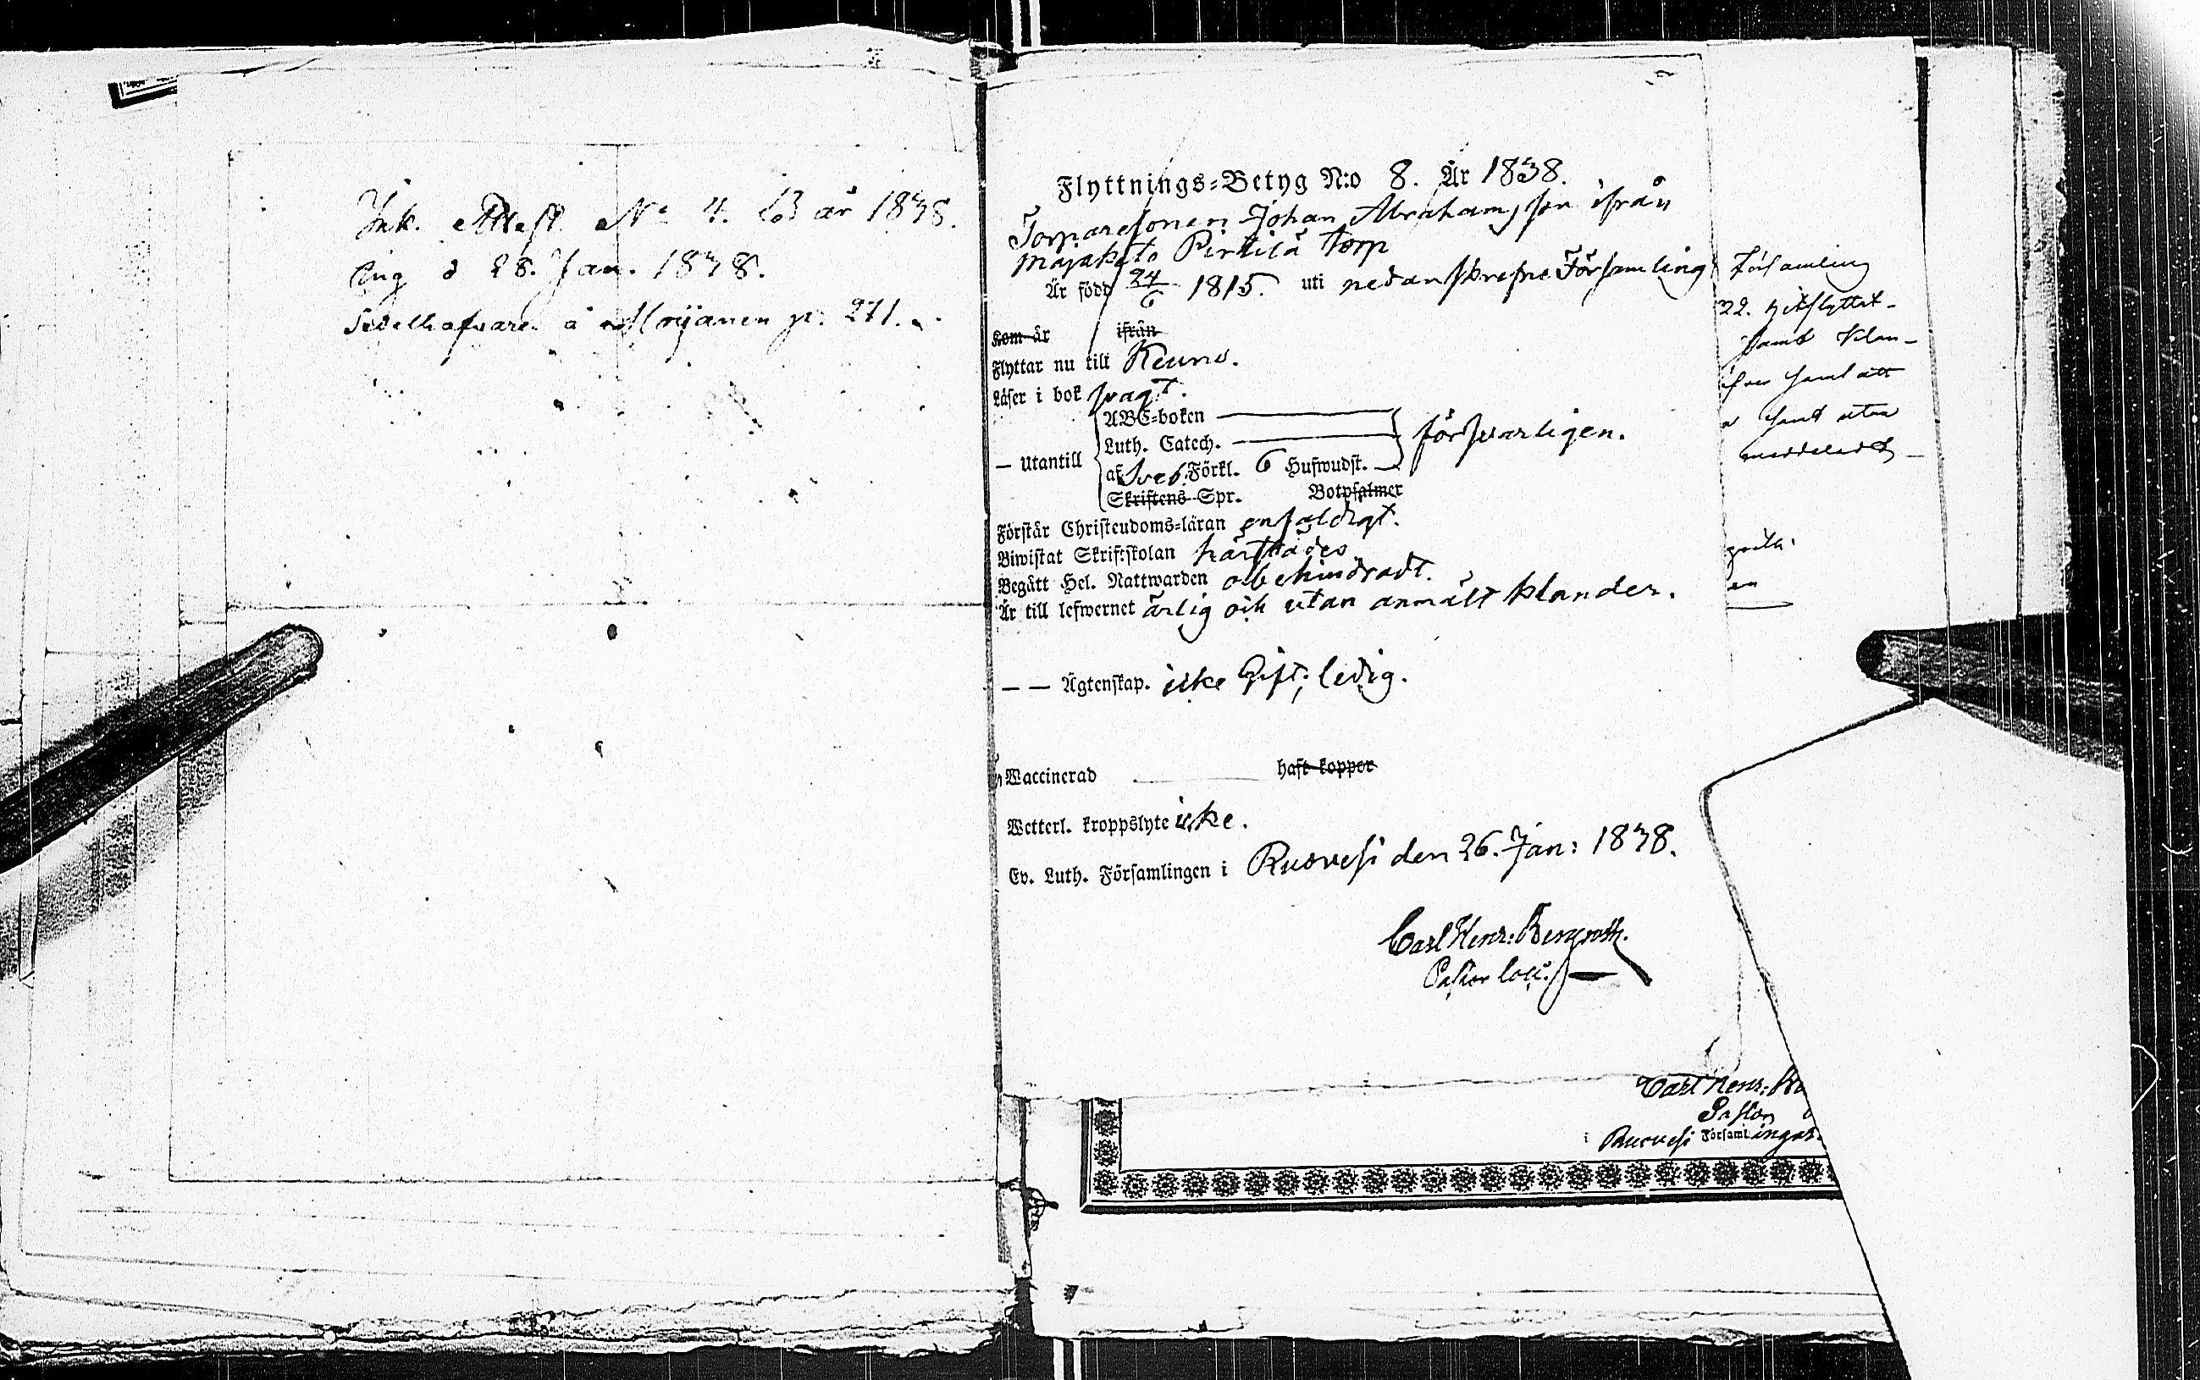 Ink. Attest. No 4. år 1838.
d 28. Jan. 1838.
Sedelhafvaren å p. 271.
Flyttnings-Betyg N:o 8. År 1838.
Torparesonen Johan Abrahamsson ifrån
Majakoto Pirttilä torp
Är född 24/6 1815. uti nedanskrefne Församling
Kom år ifrån
Flyttar nu till Keuru.
Läser i bok svagt.
— Utantill
ABC-boken
Luth. Catech.
af Sveb. Förkl. 6 Hufwudst.
försvarligen.
Skriftens Spr. Botpsalmer
Förstår Christendoms-läran enfaldigt.
Biwistat Skriftskolan härstädes
Begått Hel. Nattwarden obehindradt.
Är till lefwernet ärlig och utan anmält klander.
— — Ägtenskap. icke Gift, ledig.
Waccinerad haft koppor
Wetterl. kroppslyte icke.
Ev. Luth. Församlingen i Ruovesi den 26. Jan: 1838.
Carl Henr: Bergroth.
Pastor loci.
Församling
22. utflyttat
samt
samt att
samt utan
meddeladt
Carl Henr:
Pastor
i Ruovesi Församlingar